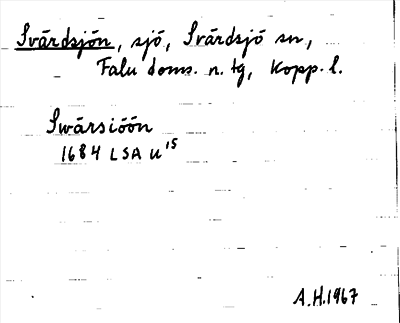 Svärdsjön, sjö, Svärdsjö sn,
Falu doms. n. tg, Kopp. l.
Swärsiöön
1684 LSA U 15
A.H. 1967